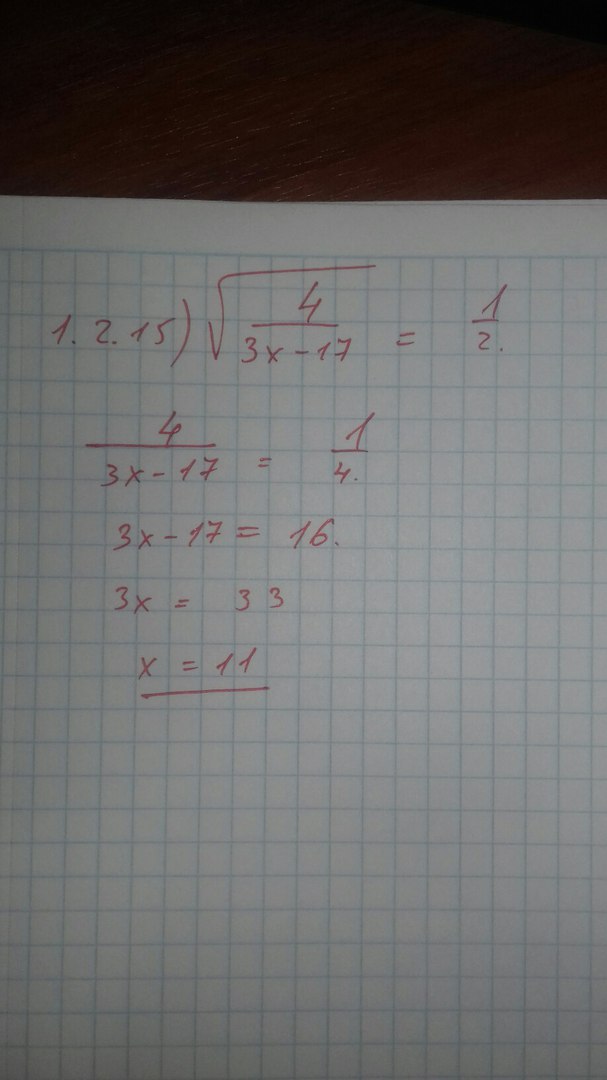 1.2.15) √(4/(3x-17)) = 1/2.
4/(3x-17) = 1/4.
3x-17 = 16.
3x = 33
x = 11